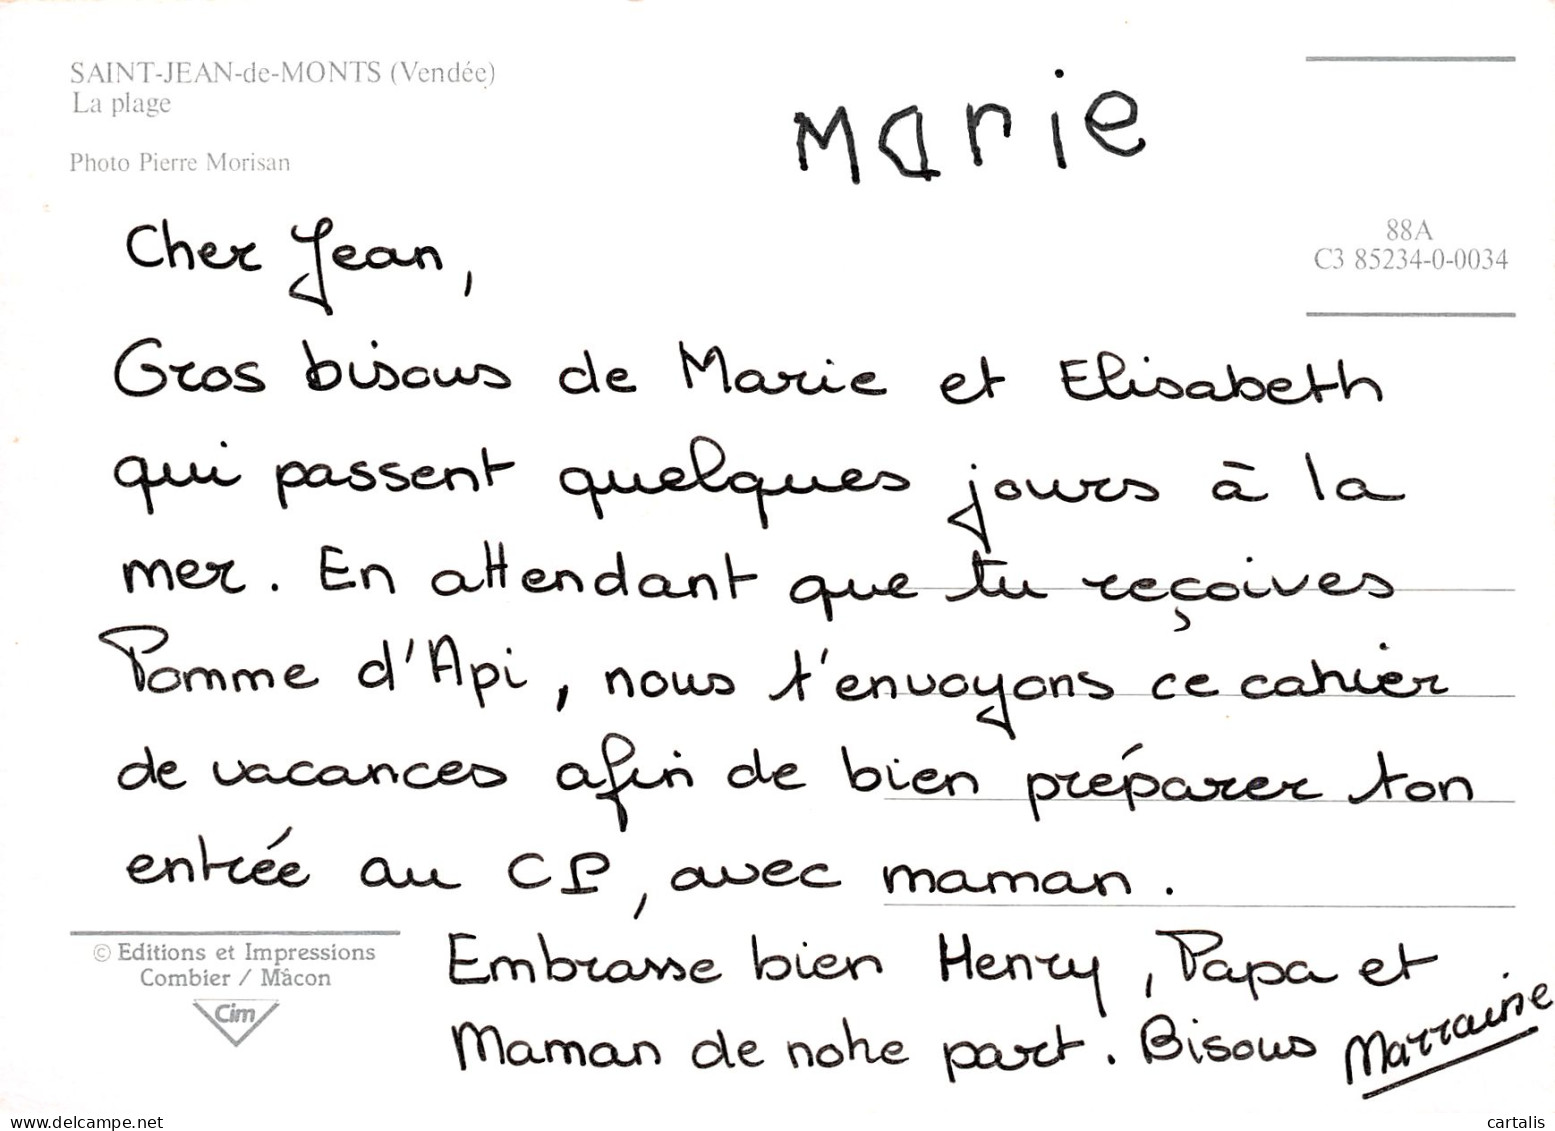 SAINT-JEAN-de-MONTS (Vendée)
La plage
Photo Pierre Morisan
Marie
88A
C3 85234-0-0034
Cher Jean,
Gros bisous de Marie et Elisabeth
qui passent quelques jours à la
mer. En attendant que tu reçoives
Pomme d'Api, nous t'envoyons ce cahier
de vacances afin de bien préparer ton
entrée au CP, avec maman.
© Editions et Impressions
Combier / Mâcon
Cim
Embrasse bien Henry, Papa et
Maman de notre part. Bisous Marraine
www.delcampe.net
cartalis